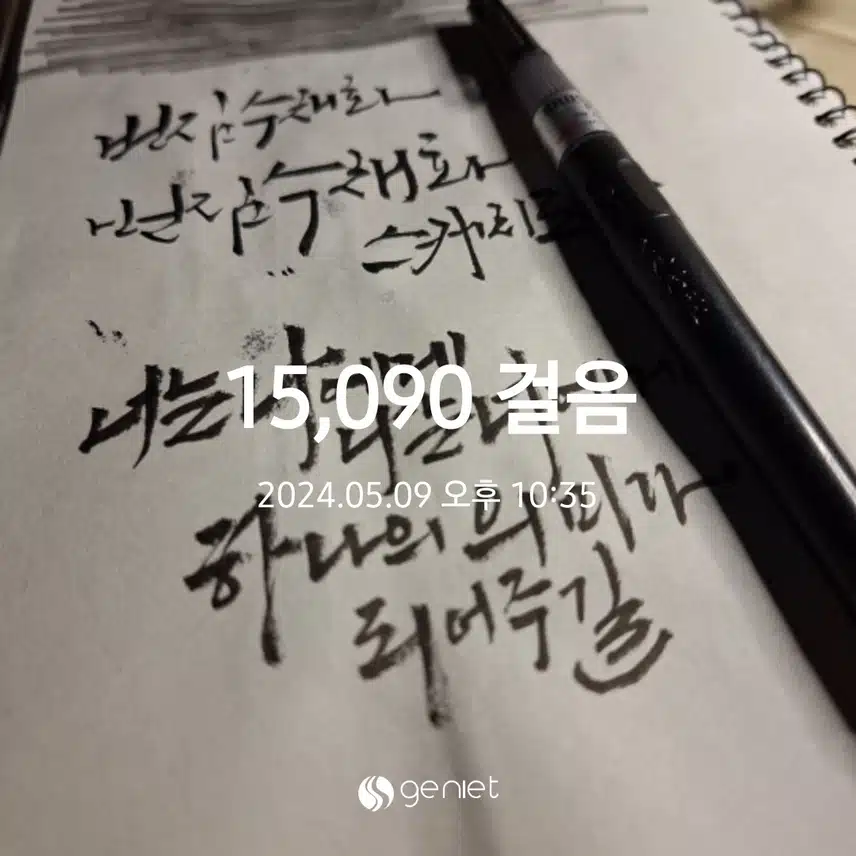 번짐수채화
번짐수채화
스케치로
"너는 나
15,090 걸음
2024.05.09 오후 10:35
하나의 의미가
되어주길
geniet